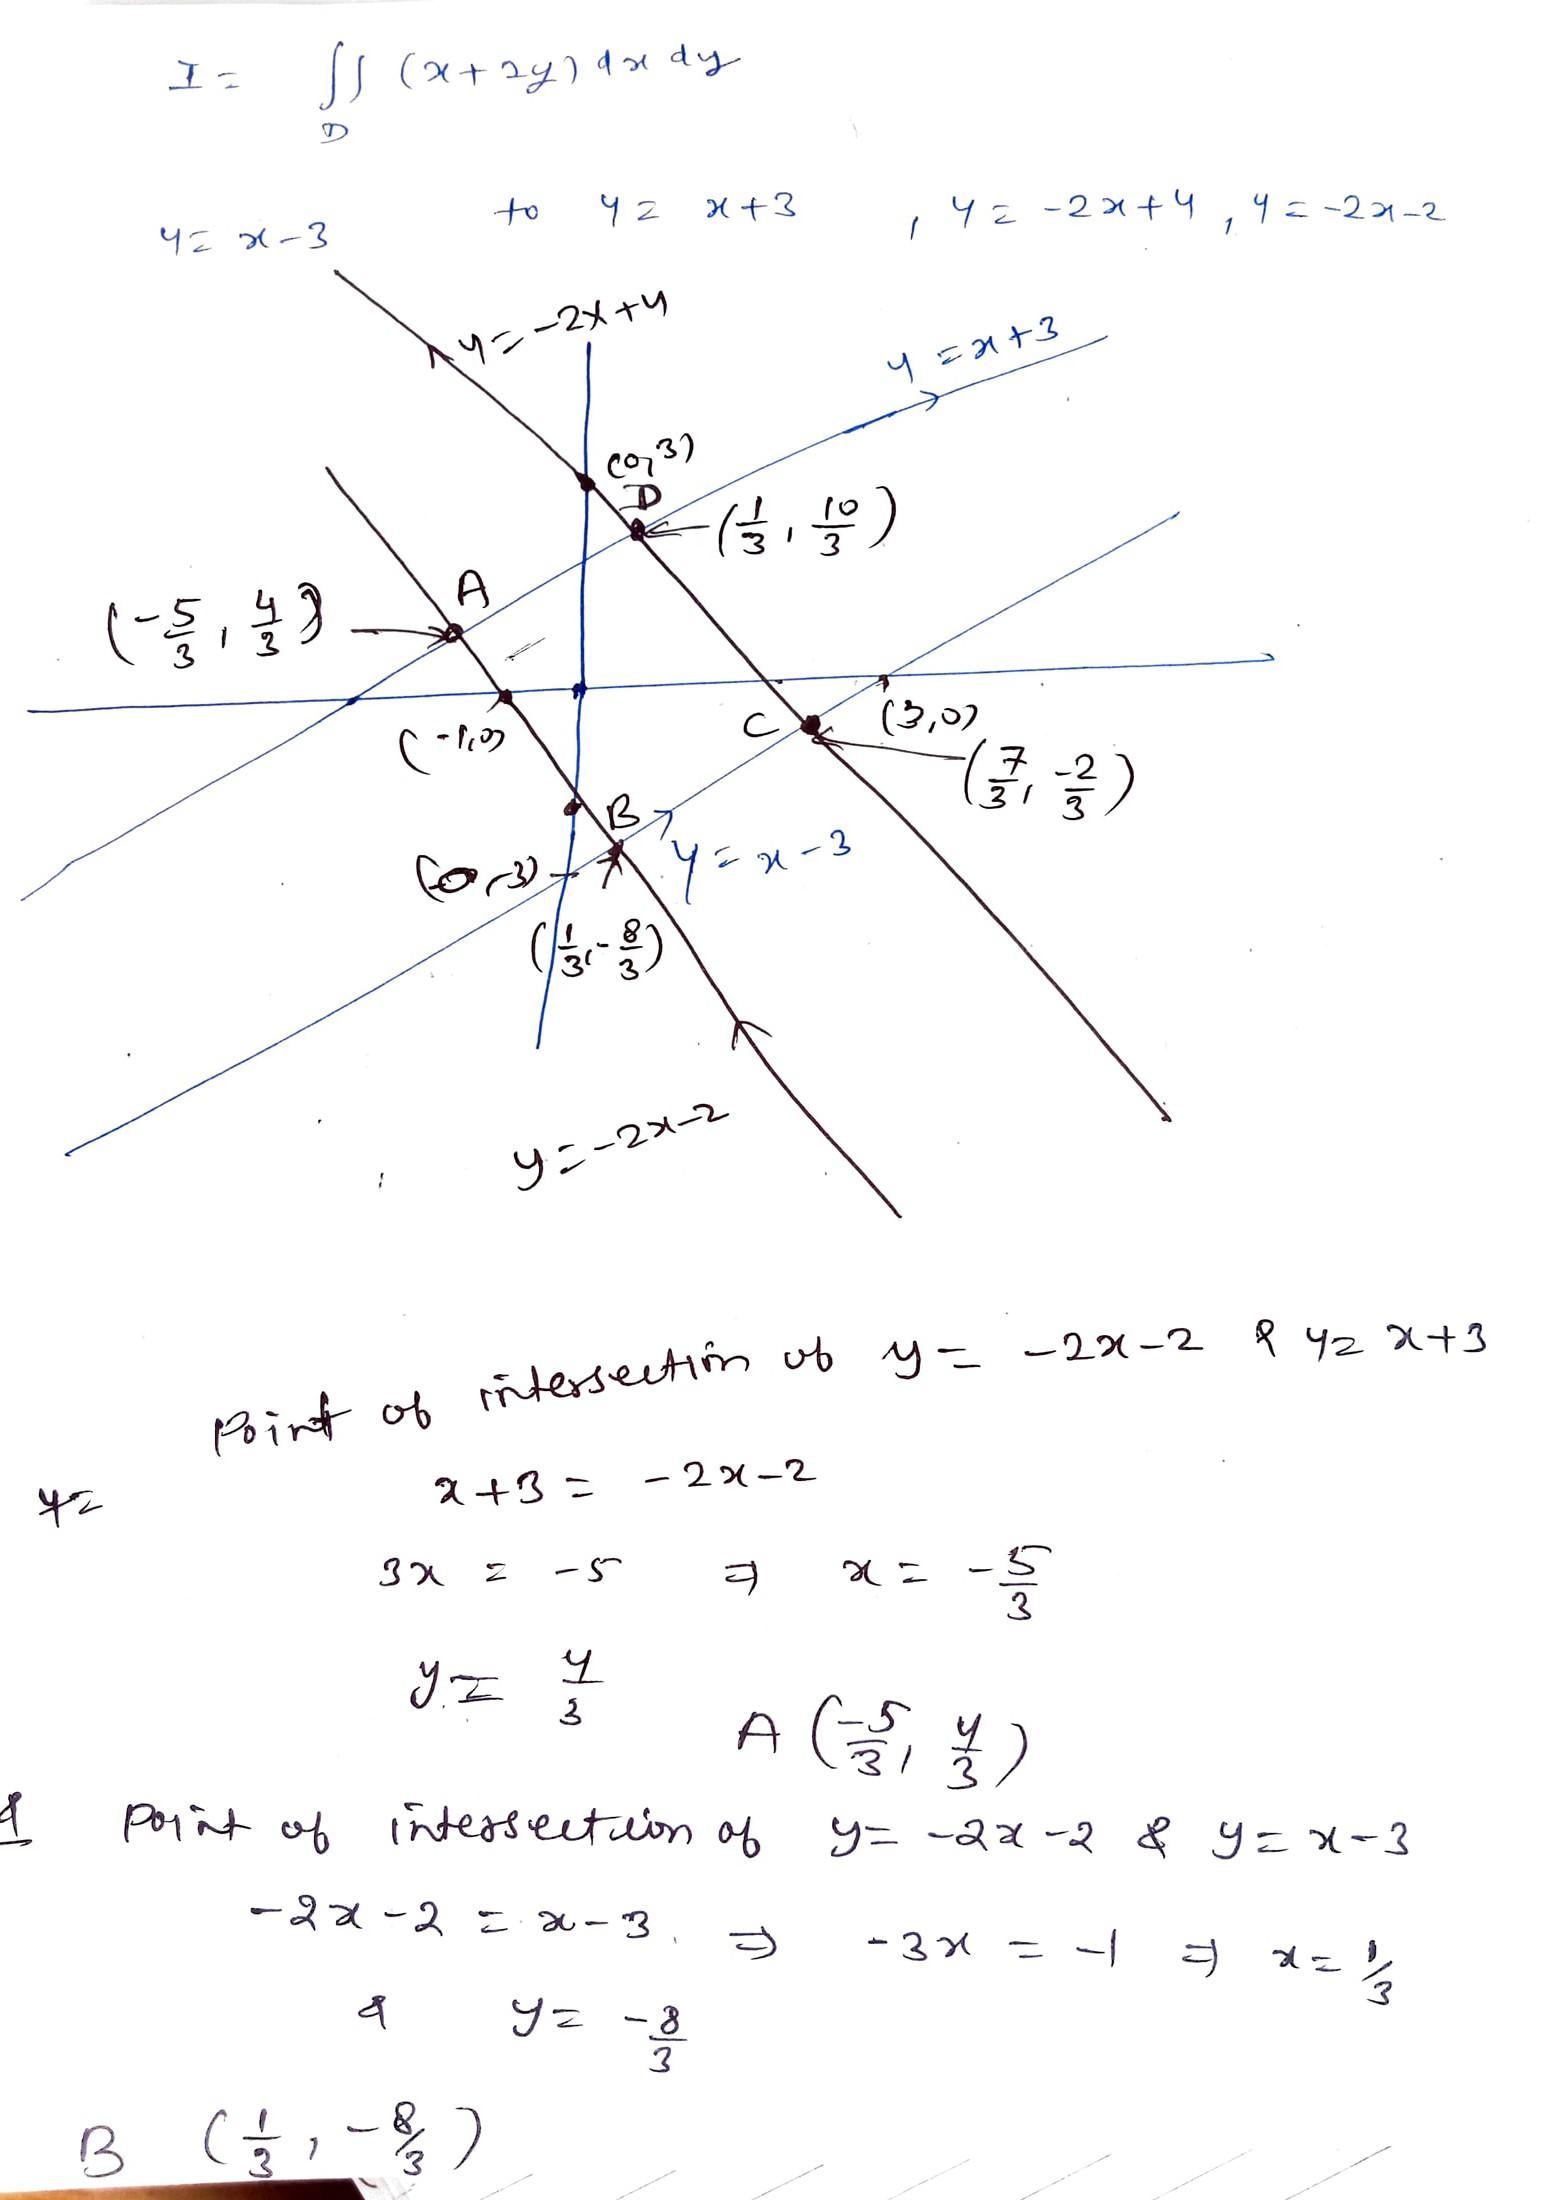 I = ∬ (x+2y) dx dy
D
y = x-3 to y = x+3 , y = -2x+4 , y = -2x-2
y = -2x+4
y = x+3
(0,3)
D
(1/3, 10/3)
A
(-5/3, 4/3)
(-1,0)
C
(3,0)
(7/3, -2/3)
B
y = x-3
(0,-3)
(1/3, -8/3)
y = -2x-2
Point of intersection of y = -2x-2 & y = x+3
y = x+3 = -2x-2
3x = -5 ⇒ x = -5/3
y = 4/3
A (-5/3, 4/3)
& Point of intersection of y = -2x-2 & y = x-3
-2x-2 = x-3 ⇒ -3x = -1 ⇒ x = 1/3
& y = -8/3
B (1/3, -8/3)